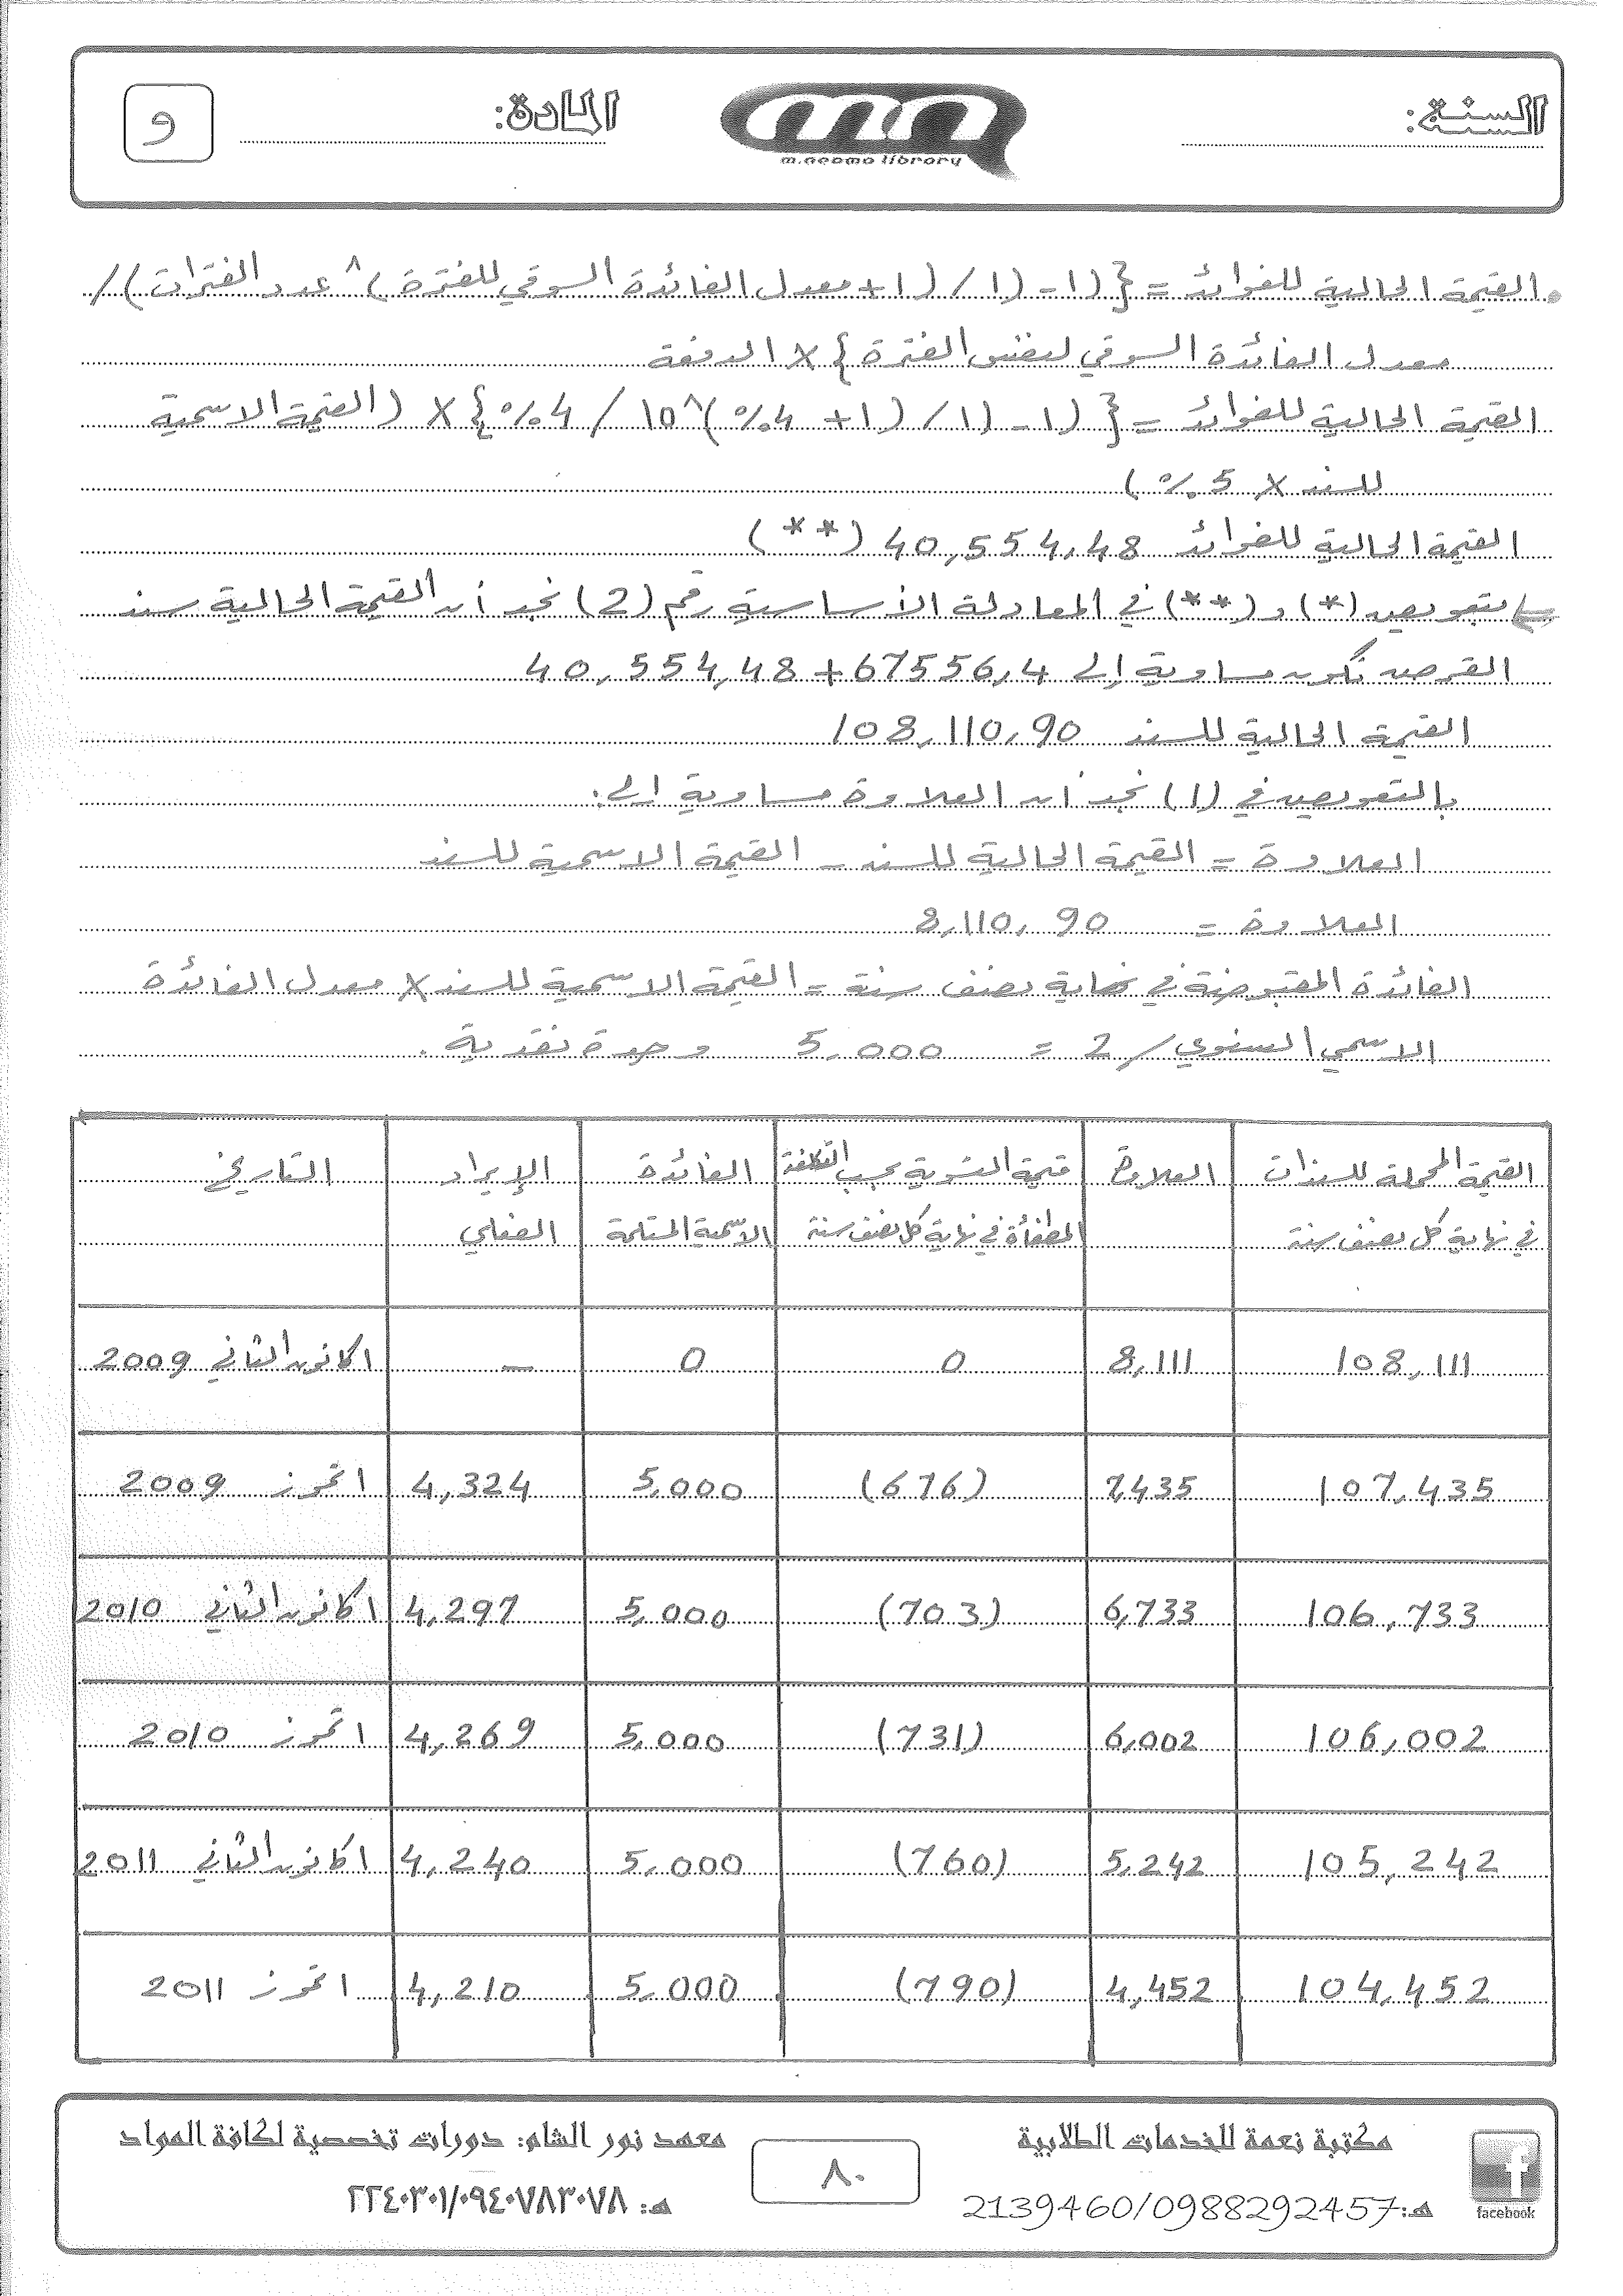 السنة:
m.neoma library
المادة:
و
القيمة الحالية للفوائد = {(1 - (1 / (1 + معدل الفائدة السوقي للفترة) ^ عدد الفترات) /
معدل الفائدة السوقي لنفس الفترة} × الدفعة
القيمة الحالية للفوائد = {(1 - (1 / (1 + 4%)^10 / 4%} × (القيمة الاسمية
للسند × 5%)
القيمة الحالية للفوائد 40,554,48 (**)
بتعويض (*) و (**) في المعادلة الأساسية رقم (2) نجد أن القيمة الحالية سند
القرض تكون مساوية إلى 67556,4 + 40,554,48
القيمة الحالية للسند 108,110,90
بالتعويض في (1) نجد أن العلاوة مساوية إلى:
العلاوة = القيمة الحالية للسند - القيمة الاسمية للسند
العلاوة = 8,110,90
الفائدة المقبوضة في نهاية نصف سنة = القيمة الاسمية للسند × معدل الفائدة
الاسمي السنوي / 2 = 5,000 وحدة نقدية.
القيمة المحملة للسندات العلاوة قيمة التسوية بحسب التكلفة الفائدة الإيراد التاريخ
في نهاية كل نصف سنة المطفأة في نهاية كل نصف سنة الاسمية المستلمة الفعلي
108,111 8,111 0 0 — 1 كانون الثاني 2009
107,435 7,435 (676) 5,000 4,324 1 تموز 2009
106,733 6,733 (703) 5,000 4,297 1 كانون الثاني 2010
106,002 6,002 (731) 5,000 4,269 1 تموز 2010
105,242 5,242 (760) 5,000 4,240 1 كانون الثاني 2011
104,452 4,452 (790) 5,000 4,210 1 تموز 2011
facebook
مكتبة نعمة للخدمات الطلابية
هـ: 2139460/0988292457
٨٠
معهد نور الشام: دورات تخصصية لكافة المواد
هـ: ٢٢٤٠٣٠١/٠٩٤٠٧٨٣٠٧٨